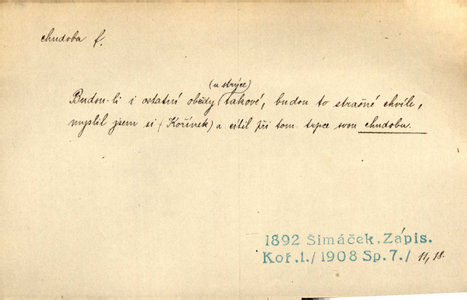 chudoba f.
(u strýce)
Budou-li i ostatní obědy (takové, budou to strašné chvíle,
myslil jsem si (Kořínek) a cítil při tom trpce svou chudobu.
1892 Šimáček, Zápis.
Koř.1./1908 Sp.7./ 11, 18.